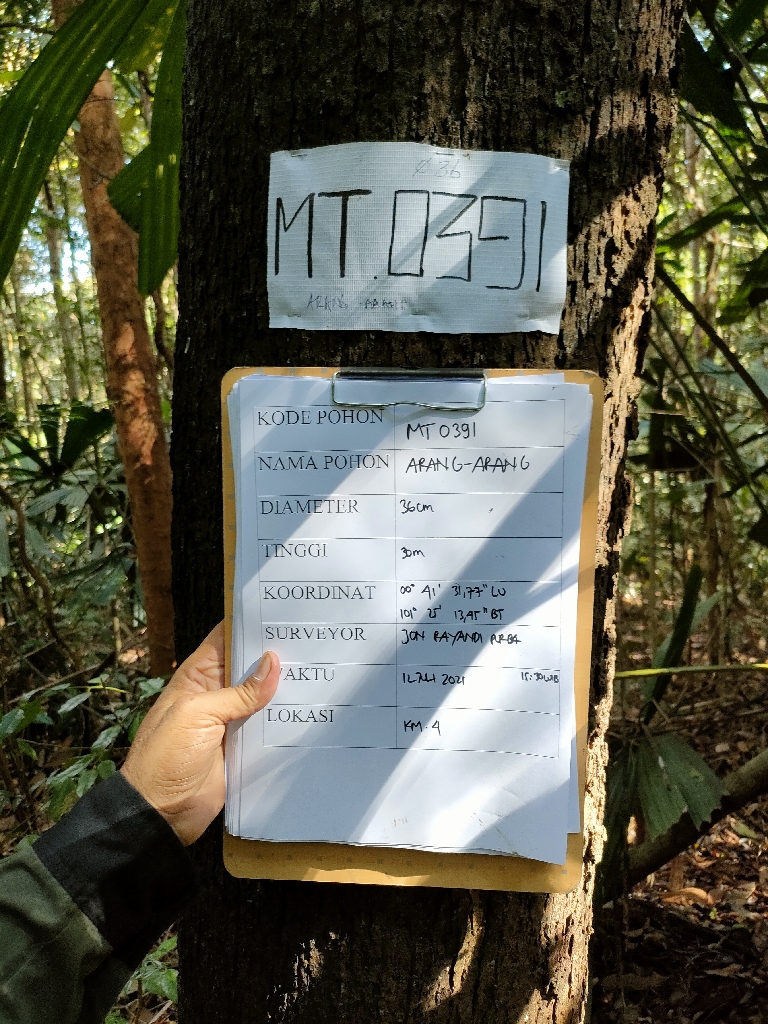 Ø 36
MT.0391
KODE POHON MT 0391
NAMA POHON ARANG-ARANG
DIAMETER 36cm
TINGGI 30m
KOORDINAT 00° 41' 31,77" LU
101° 25' 13,45" BT
SURVEYOR JON RAYANDI
WAKTU 12 2021 15:30 WIB
LOKASI KM.4